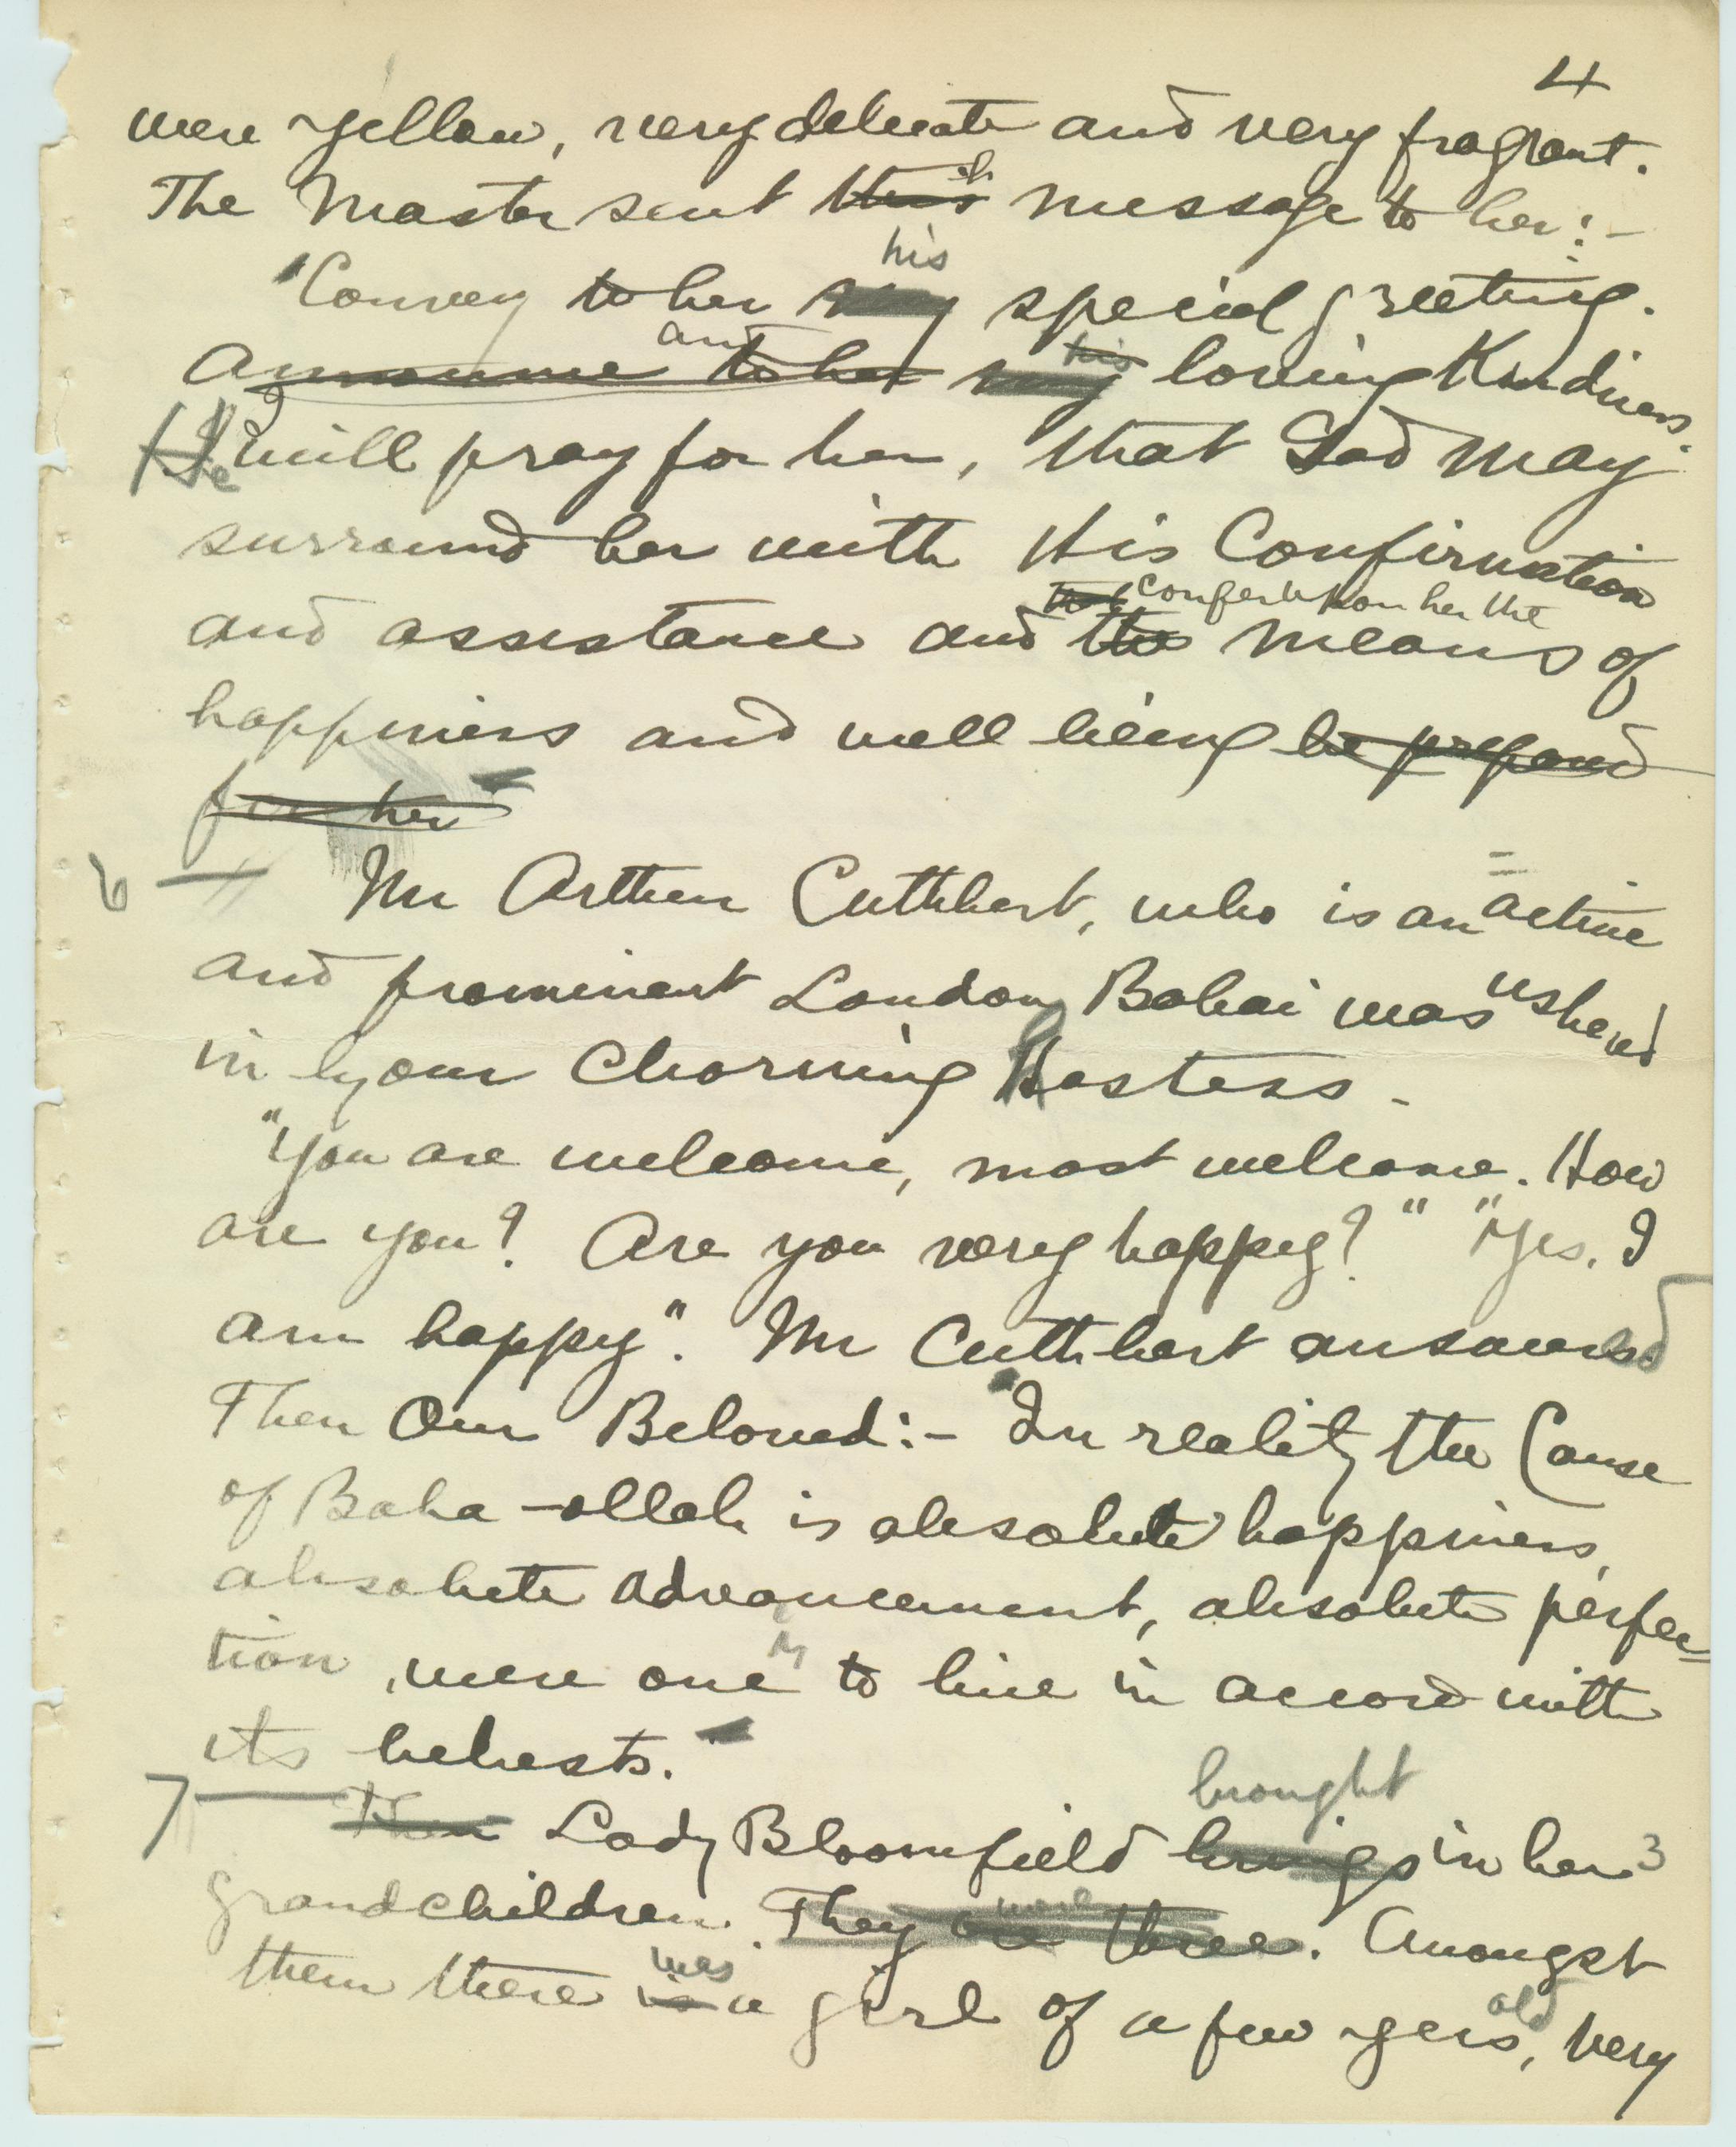 4
were yellow, very delicate and very fragrant.
The Master sent this message to her:-
his
"Convey to her my special greeting.
and his
Announce to her my loving Kindness.
He I will pray for her, that God may
surround her with His Confirmation
that confer upon her the
and assistance and the means of
happiness and well being be prepared
for her"
6 — Mr Arthur Cuthbert, who is an active
and prominent London Bahai was ushered
in by our Charming Hostess.
"You are welcome, most welcome. How
are you? Are you very happy?" "Yes, I
am happy". Mr Cuthbert answered.
Then Our Beloved:- "In reality the Cause
of Baha-ollah is absolute happiness,
absolute advancement, absolute perfec-
tion, were one to live in accord with
its behests."
brought
7 — Then Lady Bloomfield brings in her 3
were
grandchildren. They are three. Amongst
was old
them there is a girl of a few yers, very